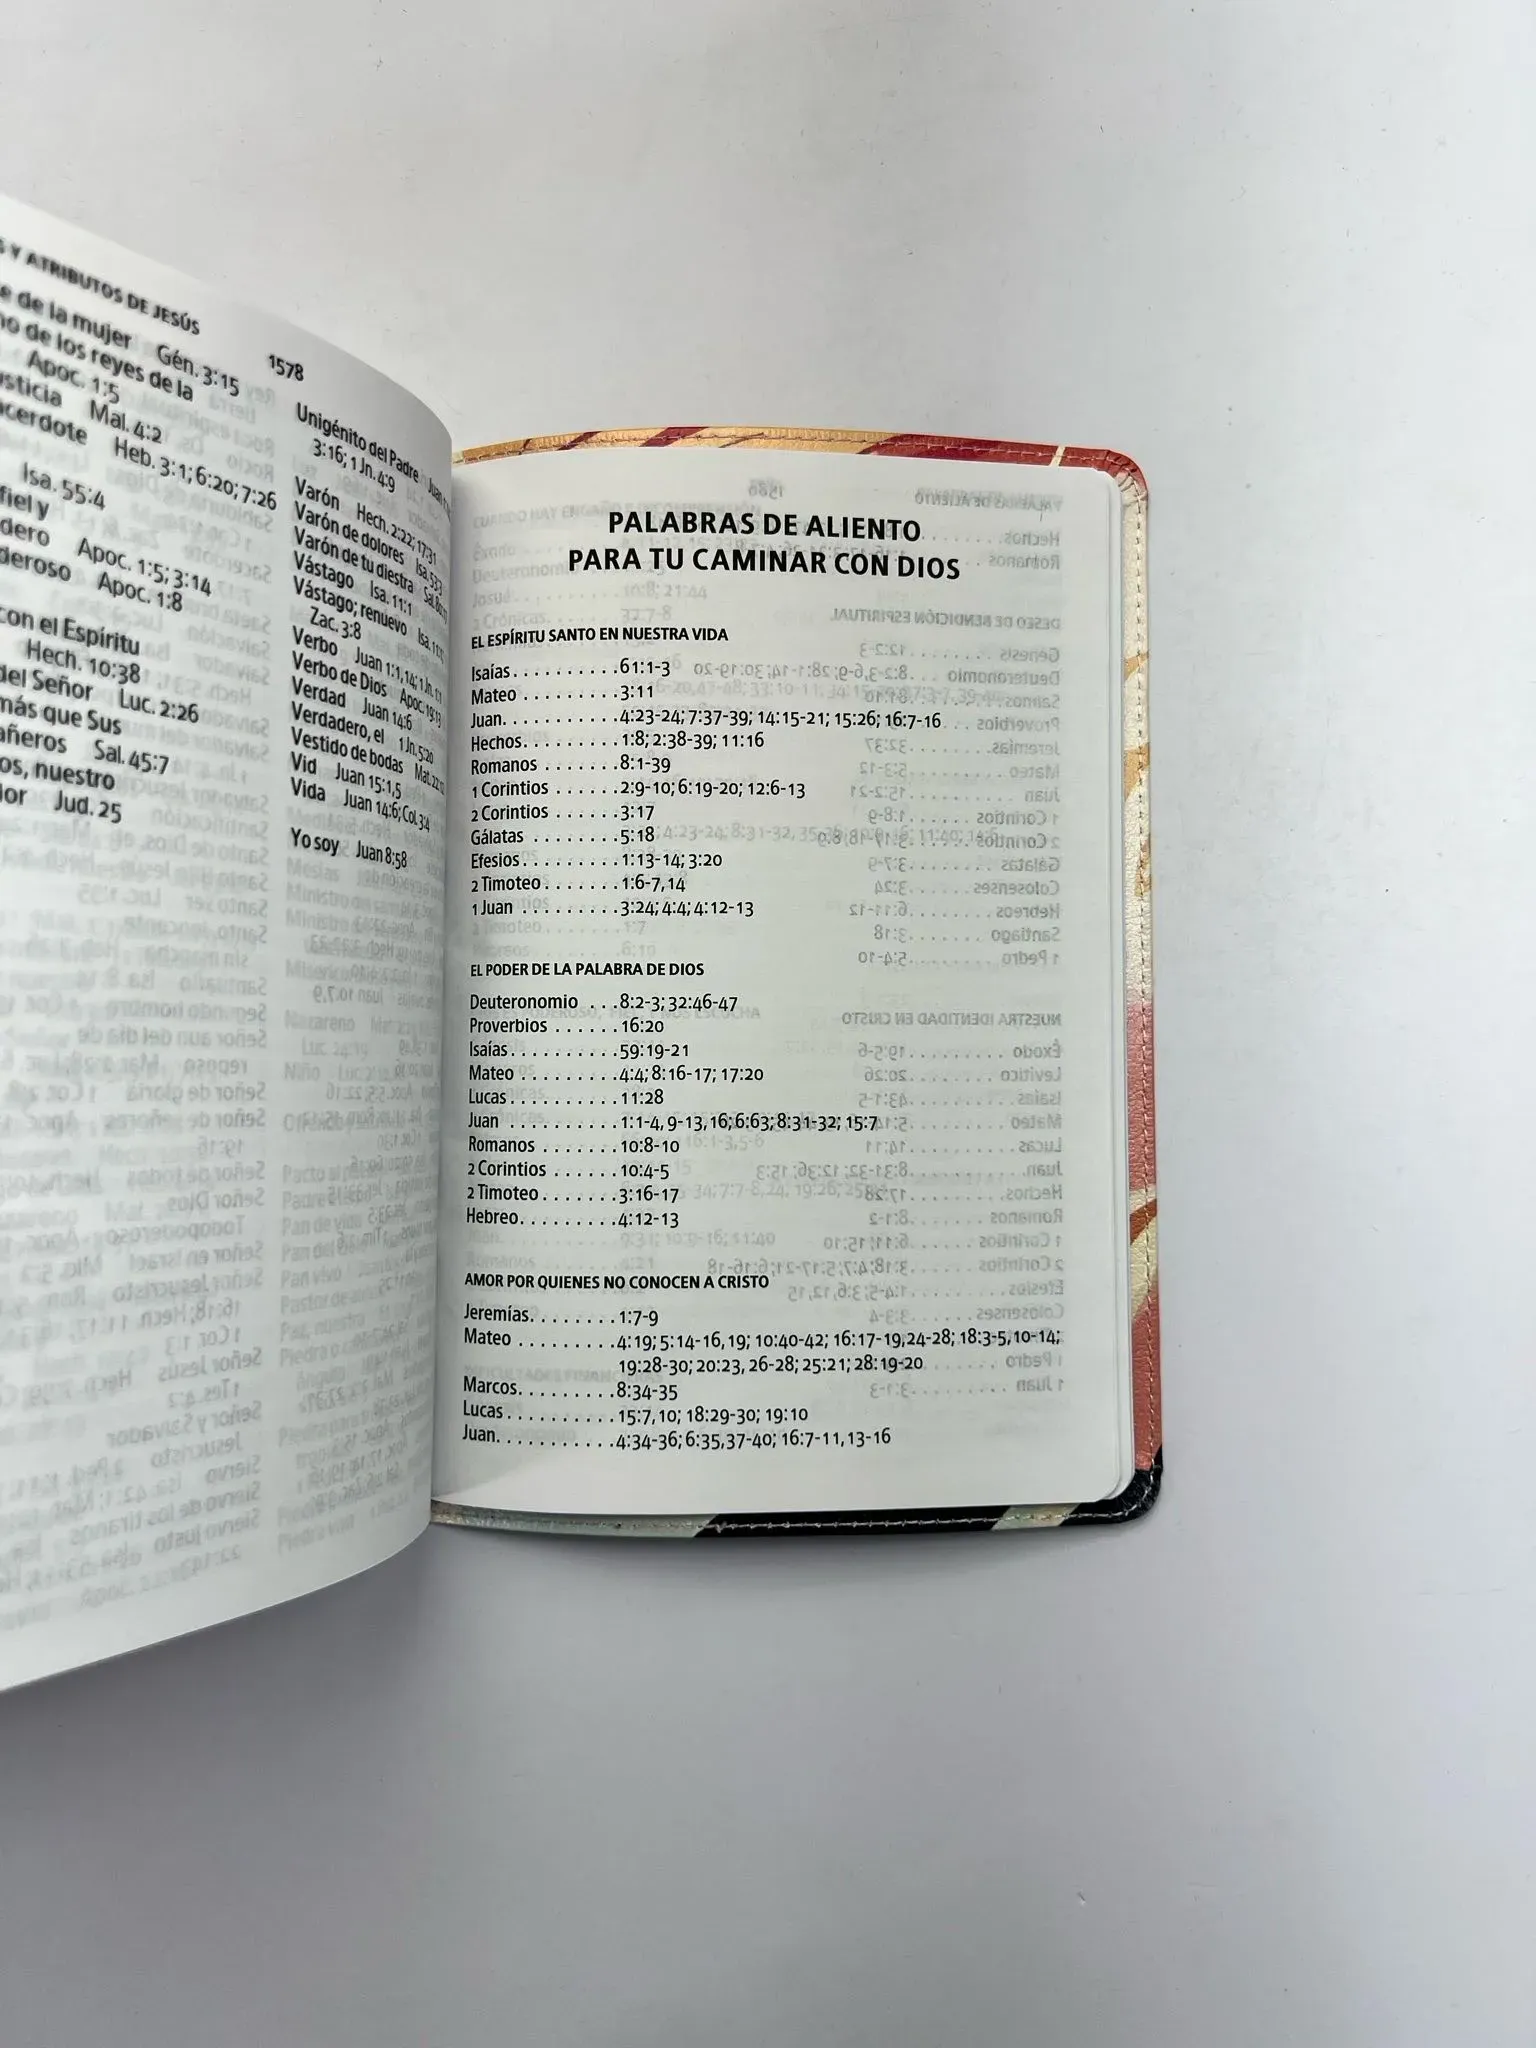 Y ATRIBUTOS DE JESÚS
1578
de la mujer Gén. 3:15
de los reyes de la
Apoc. 1:5
Mal. 4:2
Heb. 3:1; 6:20; 7:26
Isa. 55:4
fiel y
Apoc. 1:5; 3:14
Apoc. 1:8
con el Espíritu
Hech. 10:38
del Señor Luc. 2:26
más que Sus
Sal. 45:7
nuestro
Jud. 25
Unigénito del Padre Juan
3:16; 1 Jn. 4:9
Varón Hech. 2:22; 17:31
Varón de dolores Isa. 53:3
Varón de tu diestra Sal.
Vástago Isa. 11:1
Vástago; renuevo Isa.
Zac. 3:8
Verbo Juan 1:1,14; 1 Jn. 1:1
Verbo de Dios Apoc. 19:13
Verdad Juan 14:6
Verdadero, el 1 Jn. 5:20
Vestido de bodas Mat. 22:12
Vid Juan 15:1,5
Vida Juan 14:6; Col. 3:4
Yo soy Juan 8:58
PALABRAS DE ALIENTO
PARA TU CAMINAR CON DIOS
EL ESPÍRITU SANTO EN NUESTRA VIDA
Isaías. . . . . . . . . .61:1-3
Mateo . . . . . . . . .3:11
Juan. . . . . . . . . . .4:23-24; 7:37-39; 14:15-21; 15:26; 16:7-16
Hechos. . . . . . . . .1:8; 2:38-39; 11:16
Romanos . . . . . . .8:1-39
1 Corintios . . . . . .2:9-10; 6:19-20; 12:6-13
2 Corintios . . . . . .3:17
Gálatas . . . . . . . .5:18
Efesios . . . . . . . . .1:13-14; 3:20
2 Timoteo . . . . . . .1:6-7,14
1 Juan . . . . . . . . .3:24; 4:4; 4:12-13
EL PODER DE LA PALABRA DE DIOS
Deuteronomio . . .8:2-3; 32:46-47
Proverbios . . . . . .16:20
Isaías . . . . . . . . . .59:19-21
Mateo . . . . . . . . .4:4; 8:16-17; 17:20
Lucas . . . . . . . . . .11:28
Juan . . . . . . . . . .1:1-4, 9-13, 16; 6:63; 8:31-32; 15:7
Romanos . . . . . . .10:8-10
2 Corintios . . . . . .10:4-5
2 Timoteo . . . . . . .3:16-17
Hebreo. . . . . . . . .4:12-13
AMOR POR QUIENES NO CONOCEN A CRISTO
Jeremías. . . . . . . .1:7-9
Mateo . . . . . . . . .4:19; 5:14-16,19; 10:40-42; 16:17-19,24-28; 18:3-5,10-14;
19:28-30; 20:23, 26-28; 25:21; 28:19-20
Marcos. . . . . . . . .8:34-35
Lucas . . . . . . . . . .15:7, 10; 18:29-30; 19:10
Juan. . . . . . . . . . .4:34-36; 6:35,37-40; 16:7-11,13-16